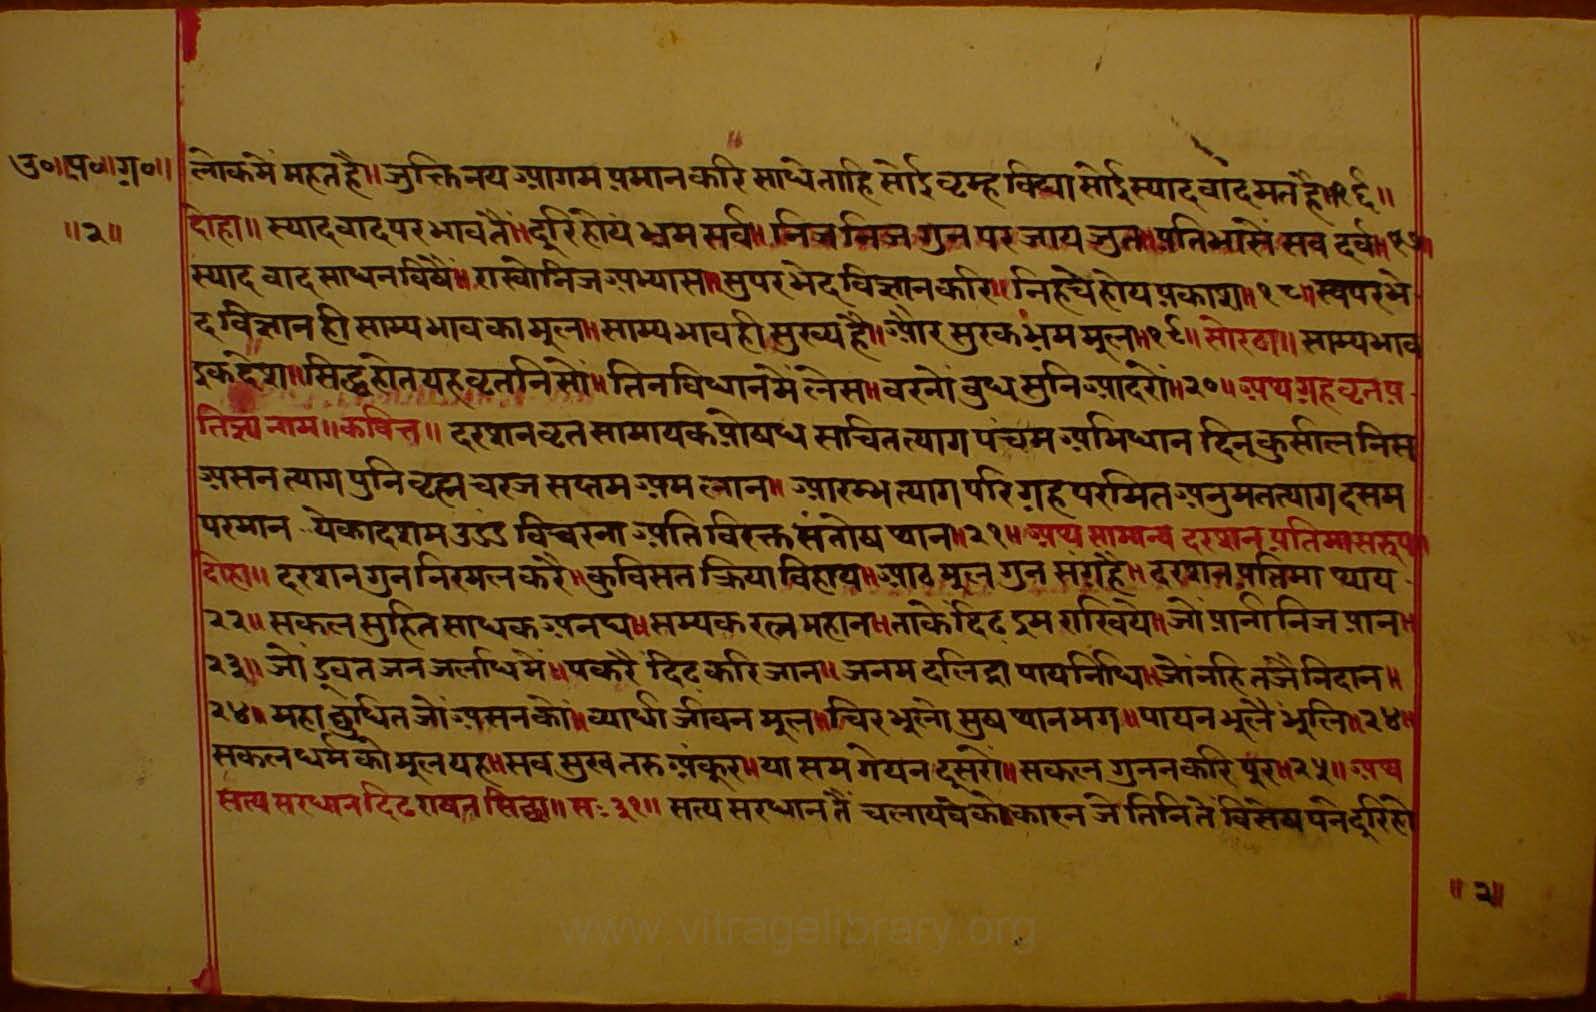 उ०॥प०॥ग्र०॥
॥२॥
लोकमें महत है॥ जुक्ति नय आगम प्रमान करि साधे ताहि सोई वृम्ह विद्या सोई स्याद वाद मत है॥१६॥
दोहा॥ स्याद वाद पर भाव तैं॥ दूरि होय भ्रम सर्व॥ निज निज गुन पर जाय जुत॥ प्रतिभासें सव दर्व॥१७॥
स्याद वाद साधन विषैं॥ राखो निज अभ्यास॥ सुपर भेद विज्ञान करि॥ निहचे होय प्रकाश॥१८॥ स्वपर भे
द विज्ञान ही साम्य भाव का मूल॥ साम्य भाव ही मुख्य है॥ और मुरक भ्रम मूल॥१९॥ सोरठा॥ साम्य भाव
इक देश॥ सिद्ध होत यह वृतनि सों॥ तिन विधान में लेस॥ वरनों वुध सुनि आदरों॥२०॥ अथ ग्रह वृत प्र
तिज्ञा नाम॥ कवित्त॥ दरशन वृत सामायक प्रोषध सचित त्याग पंचम अभिधान दिन कुसील निस
असन त्याग पुनि वृह्म चरज सप्तम अमलान॥ आरम्भ त्याग परिग्रह परमित अनुमत त्याग दसम
परमान येकादशम उडंड विचरना अति विरक्त संतोष थान॥२१॥ अथ सामान्य दरशन प्रतिमा सरूप॥
दोहा॥ दरशन गुन निरमल करै॥ कुविसन क्रिया विहाय॥ आठ मूल गुन संग्रहै॥ दरशन प्रतिमा थाय
२२॥ सकल सुहित साधक अनघ॥ सम्यक रत्न महान॥ ताकें दिढ इम राखिये॥ जों प्रानी निज प्रान॥
२३॥ जों डूवत जन जलधि में॥ पकरै दिढ करि जान॥ जनम दलिद्री पाय निधि॥ जों नहि तजै निदान॥
२४॥ महा छुधित जों असन कों॥ व्याधी जीवन मूल॥ चिर भूलो सुष थान मग॥ पाय न भूलै भूलि॥२४॥
सकल धर्म को मूल यह॥ सव सुख तरु अंकुर॥ या सम गेय न दूसरों॥ सकल गुनन करि पूर॥२५॥ अथ
सत्य सरधान दिढ राषन सिछा॥ सः ३१॥ सत्य सरधान तैं चलायवे को कारन जे तिनि तें विसेष पने दूरि हो
॥२॥
www.vitragelibrary.org